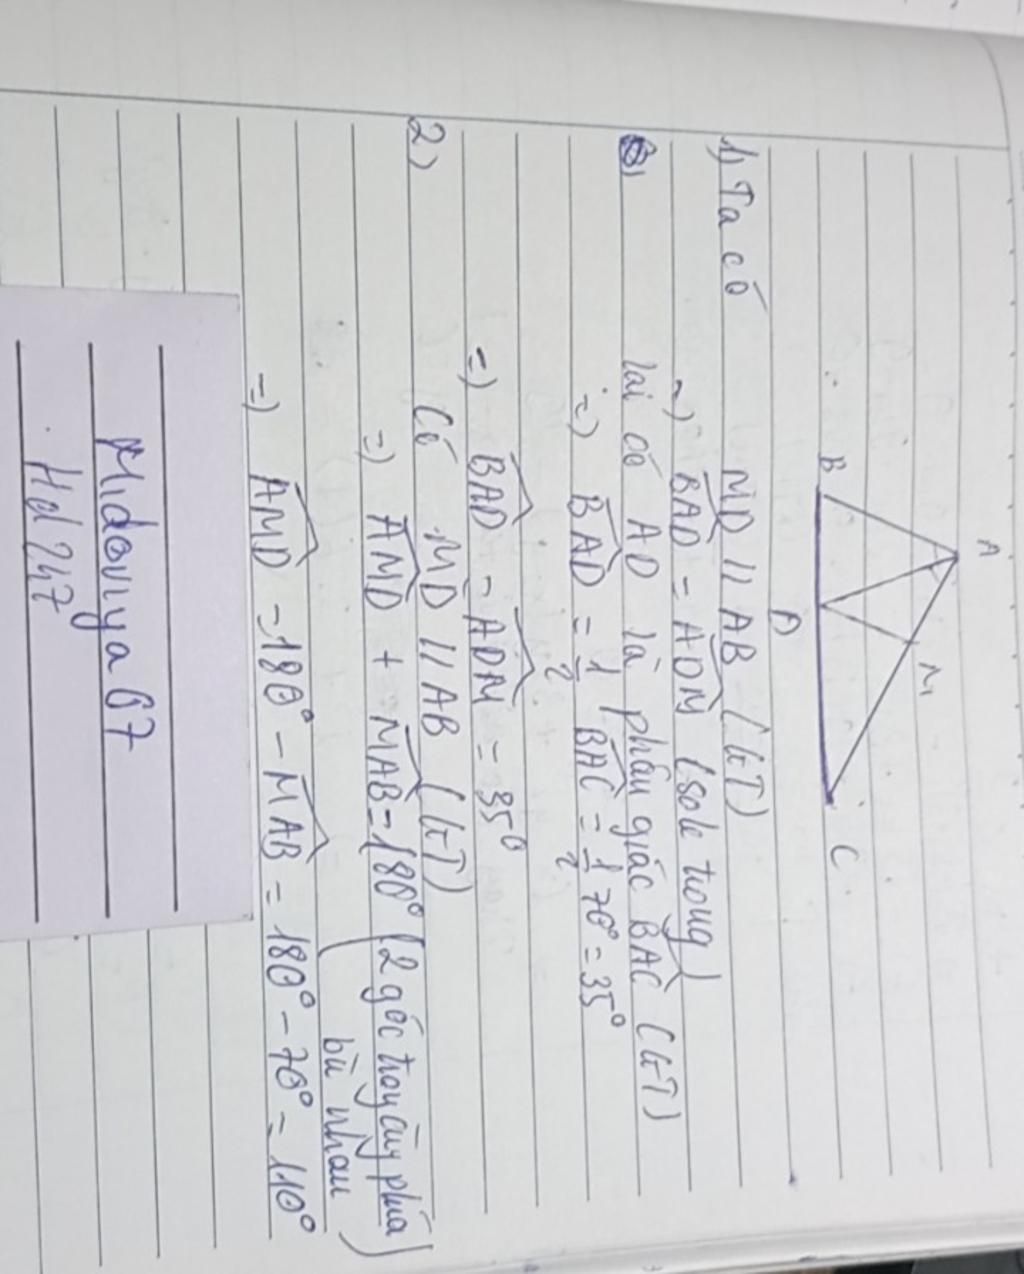 A
M
B
D
C
1) Ta có MD // AB (GT)
=) BAD = ADM (sole trong)
lại có AD là phân giác BAC (GT)
=) BAD = 1/2 BAC = 1/2 70° = 35°
=) BAD = ADM = 35°
2) Có MD // AB (GT)
=) AMD + MAB = 180° (2 góc trong cùng phía
bù nhau)
=) AMD = 180° - MAB = 180° - 70° = 110°
Midoviya67
Hd247